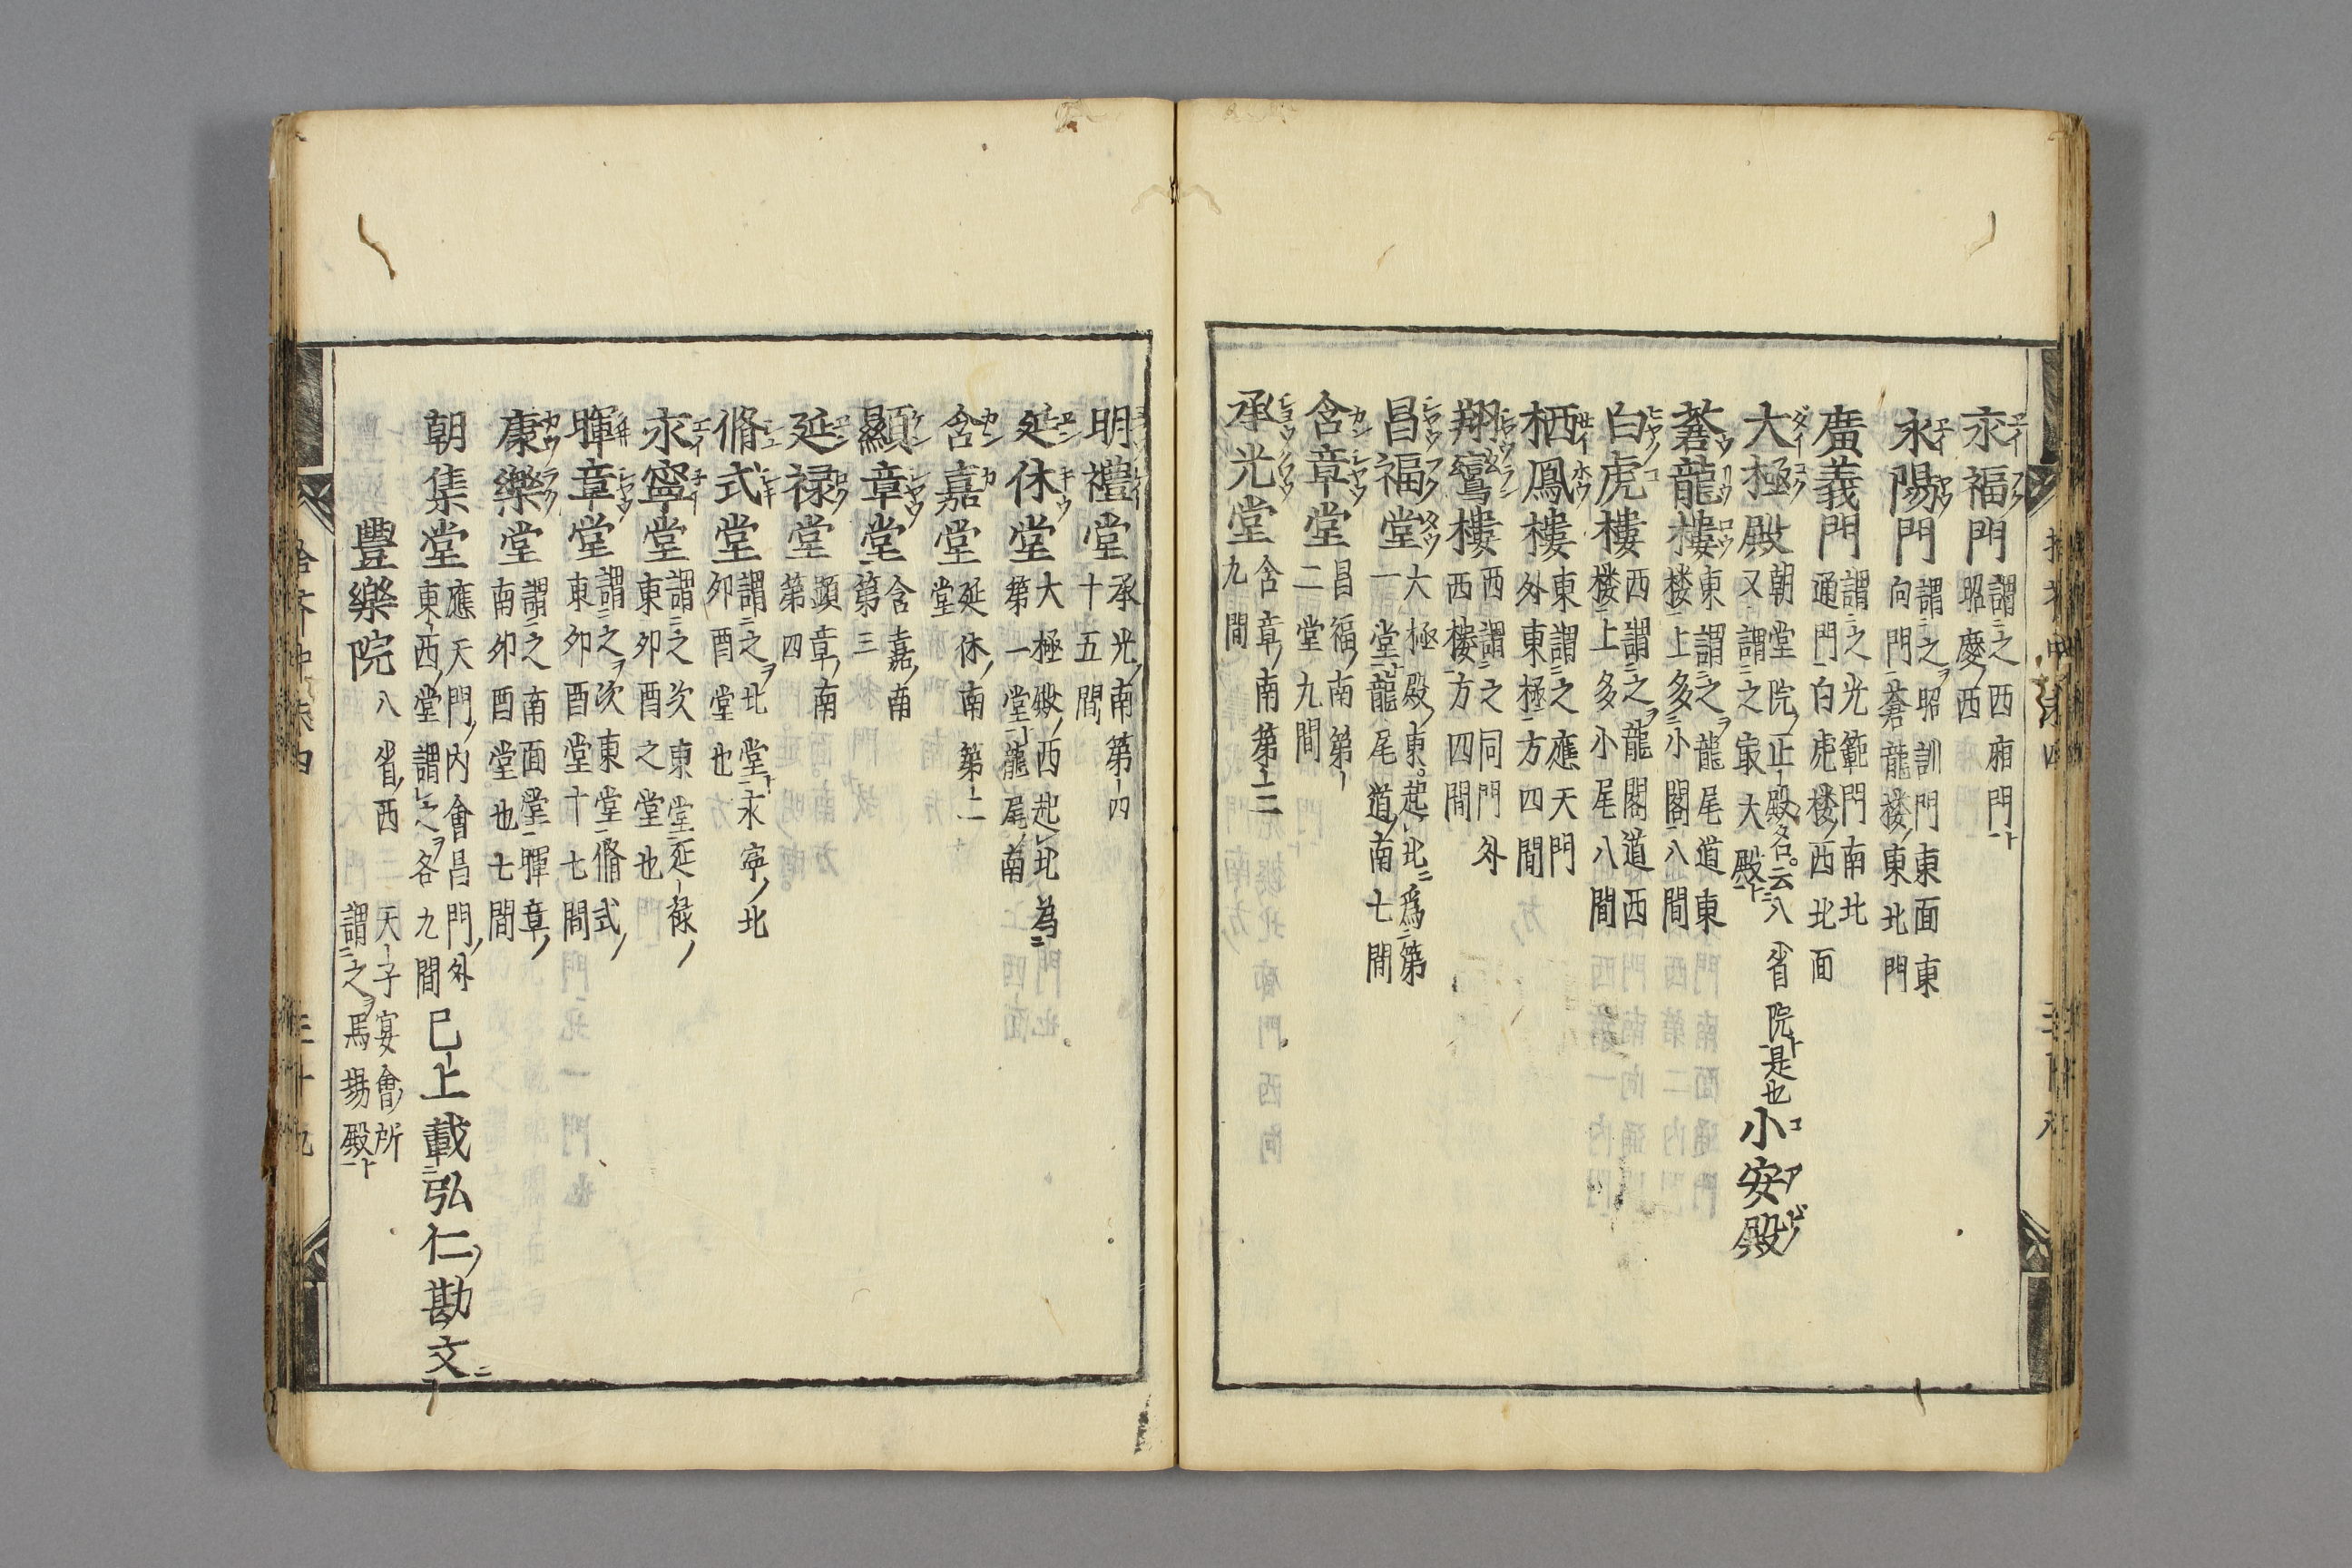 永福門 謂之西廂門 昭慶西
永陽門 謂之昭訓門東面東 向門蒼龍楼東北門
廣義門 謂之光範門南北 通門白虎楼西北面
大極殿 朝堂院正殿名云八省院是也 又謂之㝡大殿 小安殿
蒼龍樓 東謂之龍尾道東 楼上多小閣八間
白虎樓 西謂之龍閣道西 楼上多小尾八間
栖鳳樓 東謂之應天門 外東極方四間
翔鸞樓 西謂之同門外 西楼方四間
昌福堂 大極殿東起北為第 一堂龍尾道南七間
含章堂 昌福南第 二堂九間
承光堂 含章南第三 九間
明禮堂 承光南第四 十五間
延休堂 大極殿西起北為 第一堂龍尾南
含嘉堂 延休南第二 堂
顯章堂 含嘉南 第三
延禄堂 顕章南 第四
脩式堂 謂之北堂永寧北 卯酉堂也
永寧堂 謂之次東堂延禄 東卯酉之堂也
暉章堂 謂之次東堂脩式 東卯酉堂十七間
康樂堂 謂之南面堂暉章 南卯酉堂也七間
朝集堂 應天門内會昌門外 東西堂謂之各九間 已上載弘仁勘文
豐樂院 八省西 天子宴會所 謂之馬場殿